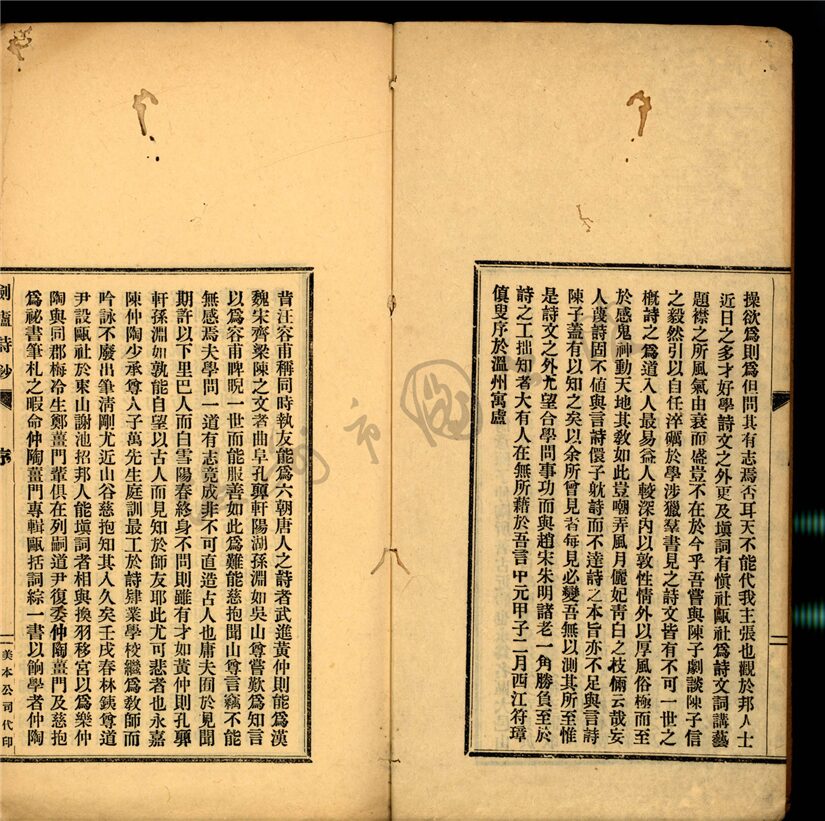 操欲爲則爲但問其有志焉否耳天不能代我主張也觀於邦人士
近日之多才好學詩文之外更及塡詞有愼社甌社爲詩文詞講藝
題襟之所風氣由衰而盛豈不在於今乎吾嘗與陳子劇談陳子信
之毅然引以自任淬礪於學涉獵羣書見之詩文皆有不可一世之
概詩之爲道入人最易益人較深内以敦性情外以厚風俗極而至
於感鬼神動天地其敎如此豈嘲弄風月儷妃靑白之枝倆云哉妄
人蔑詩固不値與言詩儇子躭詩而不達詩之本旨亦不足與言詩
陳子蓋有以知之矣以余所曾見者每見必變吾無以測其所至惟
是詩文之外尤望合學問事功而與趙宋朱明諸老一角勝負至於
詩之工拙知者大有人在無所藉於吾言中元甲子二月西江符璋
傎叟序於溫州寓廬
昔汪容甫稱同時執友能爲六朝唐人之詩者武進黃仲則能爲漢
魏宋齊梁陳之文者曲阜孔䫇軒陽湖孫淵如吳山尊嘗歎爲知言
以爲容甫睥睨一世而能服善如此爲難能慈抱聞山尊言竊不能
無感焉夫學問一道有志竟成非不可直造古人也庸夫囿於見聞
期許以下里巴人而白雪陽春終身不問則雖有才如黃仲則孔䫇
軒孫淵如孰能自望以古人而見知於師友耶此尤可悲者也永嘉
陳仲陶少承尊人子萬先生庭訓最工於詩肄業學校繼爲敎師而
吟詠不廢出筆淸剛尤近山谷慈抱知其人久矣壬戌春林鐵尊道
尹設甌社於東山謝池招邦人能塡詞者相與換羽移宮以爲樂仲
陶與同郡梅冷生鄭薑門輩俱在列嗣道尹復委仲陶薑門及慈抱
爲祕書筆札之暇命仲陶薑門專輯甌括詞綜一書以餉學者仲陶
劍廬詩鈔
序
一
美本公司代印